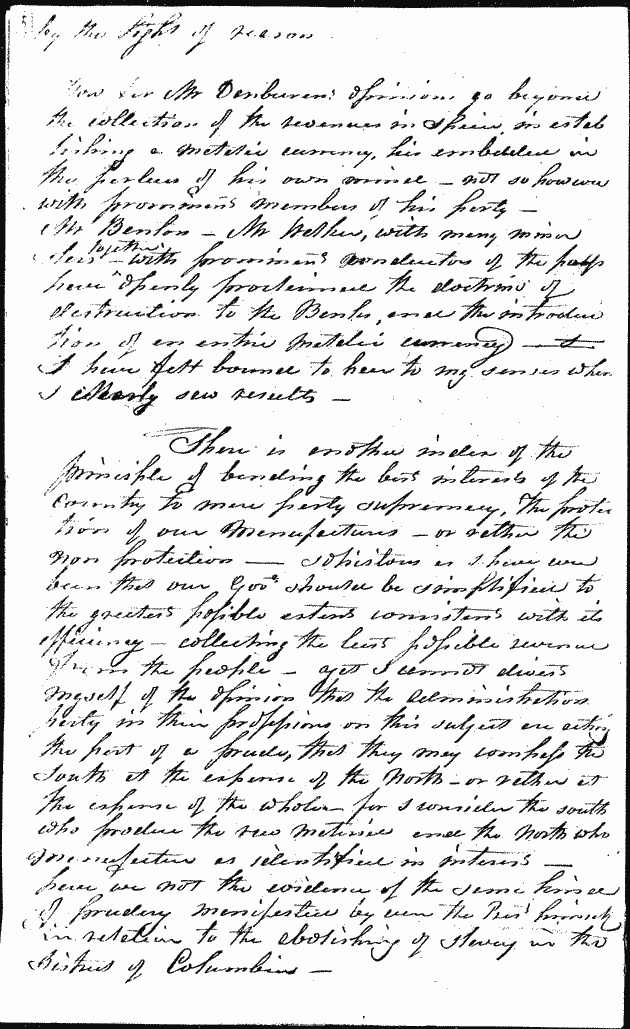 by the light of reason
How far Mr Vanburens opinions go beyond
the collection of the revenues in specie, in estab
lishing a metalic currency, his embedded in
the  of his own mind – not so however
with prominent members of his party –
Mr Benton – Mr Walker, with many minor
together
– with prominent conductors of the press
have openly proclaimed the doctrine of
destruction to the Banks, and the introduc
tion of an entire metalic currency –
I have felt bound to hear to my senses when
I clearly saw results –
There is another index of the
principle of bending the best interests of the
Country to mere party supremacy, The protec
tion of our Manufactures – or rather the
non protection – solicitous as I have ever
been that our Govt should be simplified to
the greatest possible extent consistent with its
efficiency – collecting the least possible revenue
from the people – yet I cannot divest
myself of the opinion that the administration
party in their professions on this subject are acting
the part of a prude, that they may compass the
South at the expense of the North – or rather at
the expense of the whole – for I consider the south
who produce the raw material and the North who
manufacture as identified in interest –
have we not the evidence of the same kind
of prudery manifested by even the Prest himself
in relation to the abolishing of slavery in the
District of Columbia –